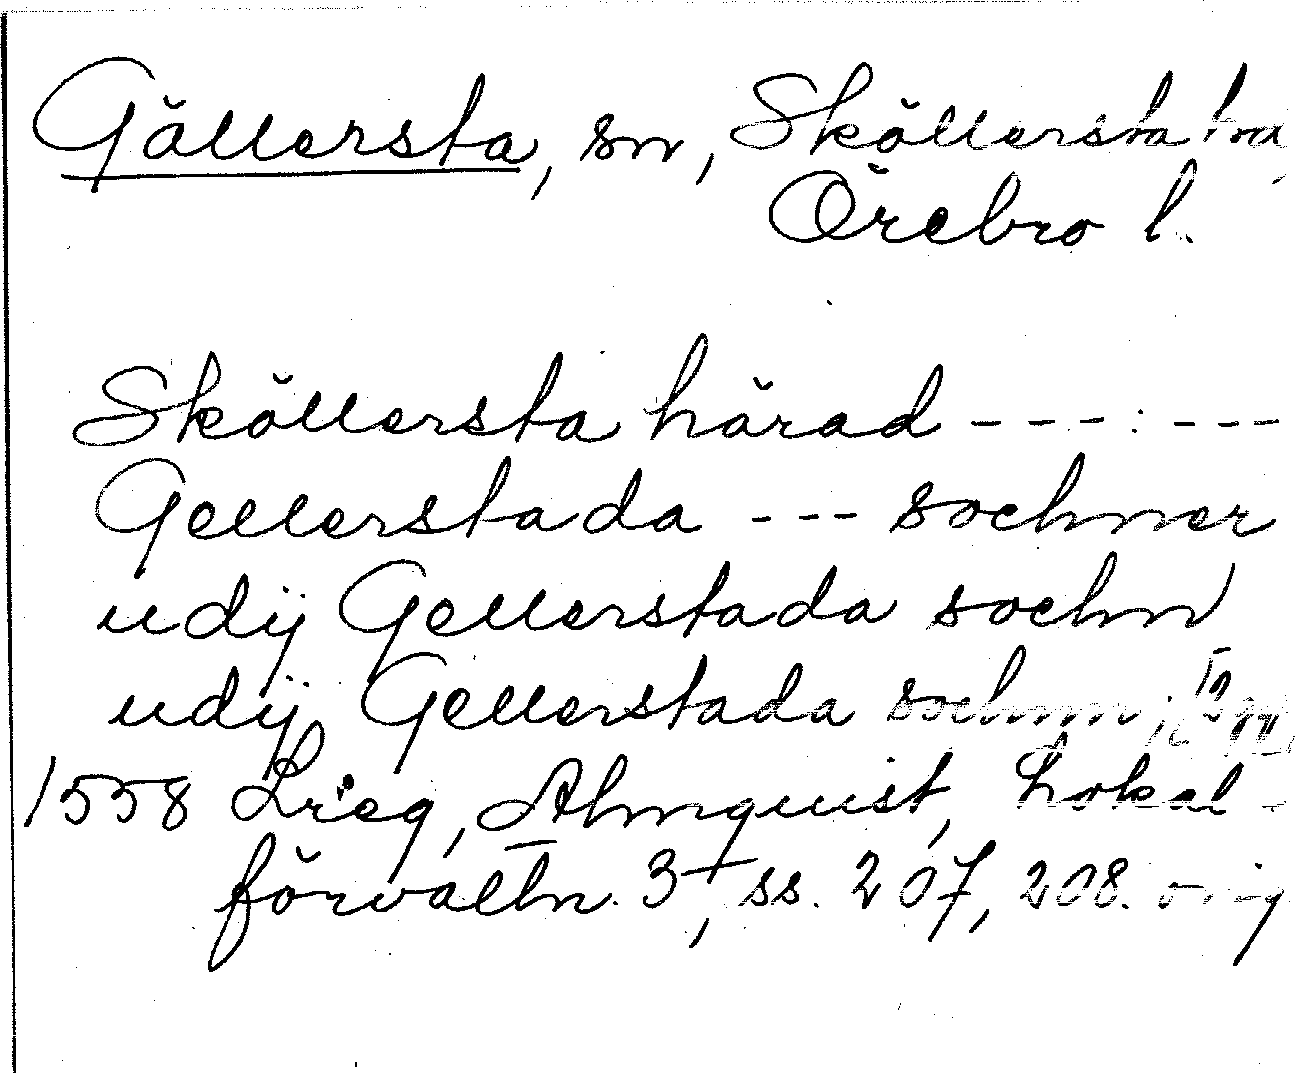 Gällersta, sn, Sköllersta hd,
Örebro l.
Sköllersta härad - - - : - - -
Gellerstada - - - sochner
udij Gellerstada sochn
udij Gellerstada sochnn;
1558 Lreg, Almquist, Lokal-
förvaltn. 3, ss. 207, 208. orig